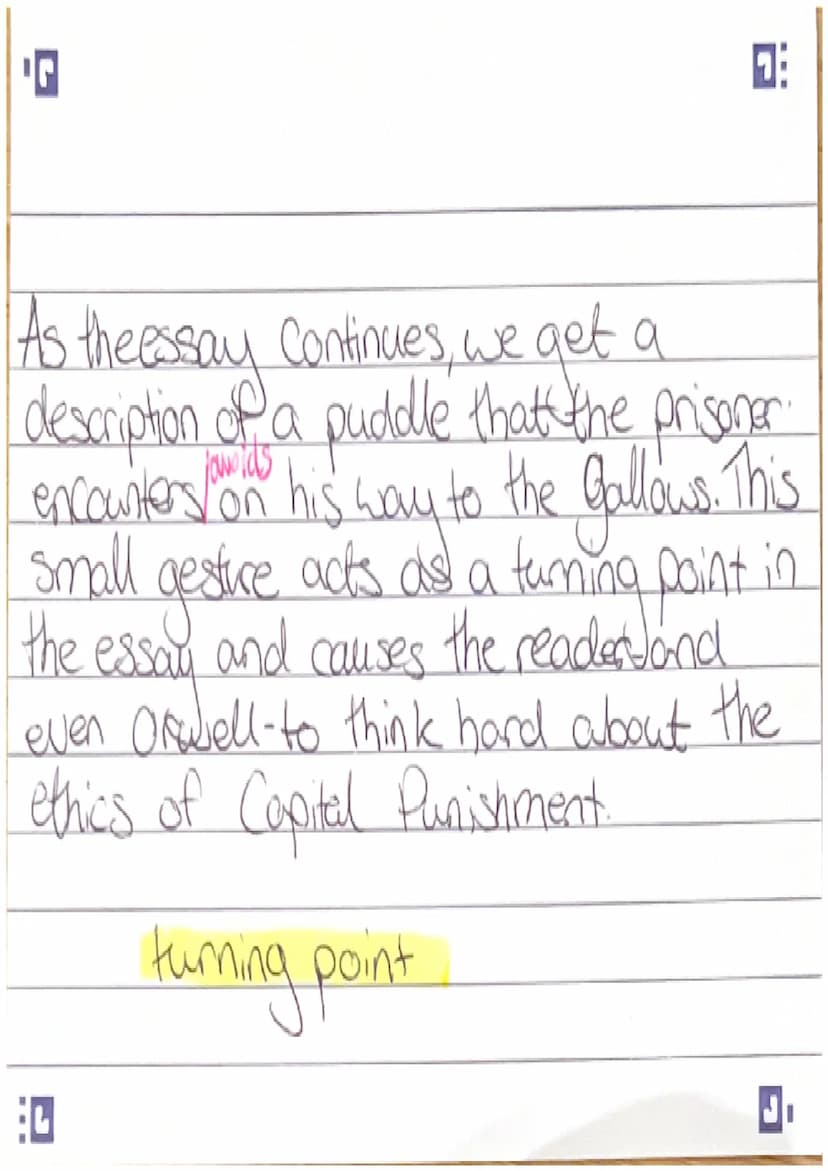 As the essay Continues, we get a
description of a puddle that the prisoner
encounters/avoids on his way to the Gallows. This
small gesture acts as a turning point in
the essay and causes the reader-and
even Orwell-to think hard about the
ethics of Capital Punishment.
turning point